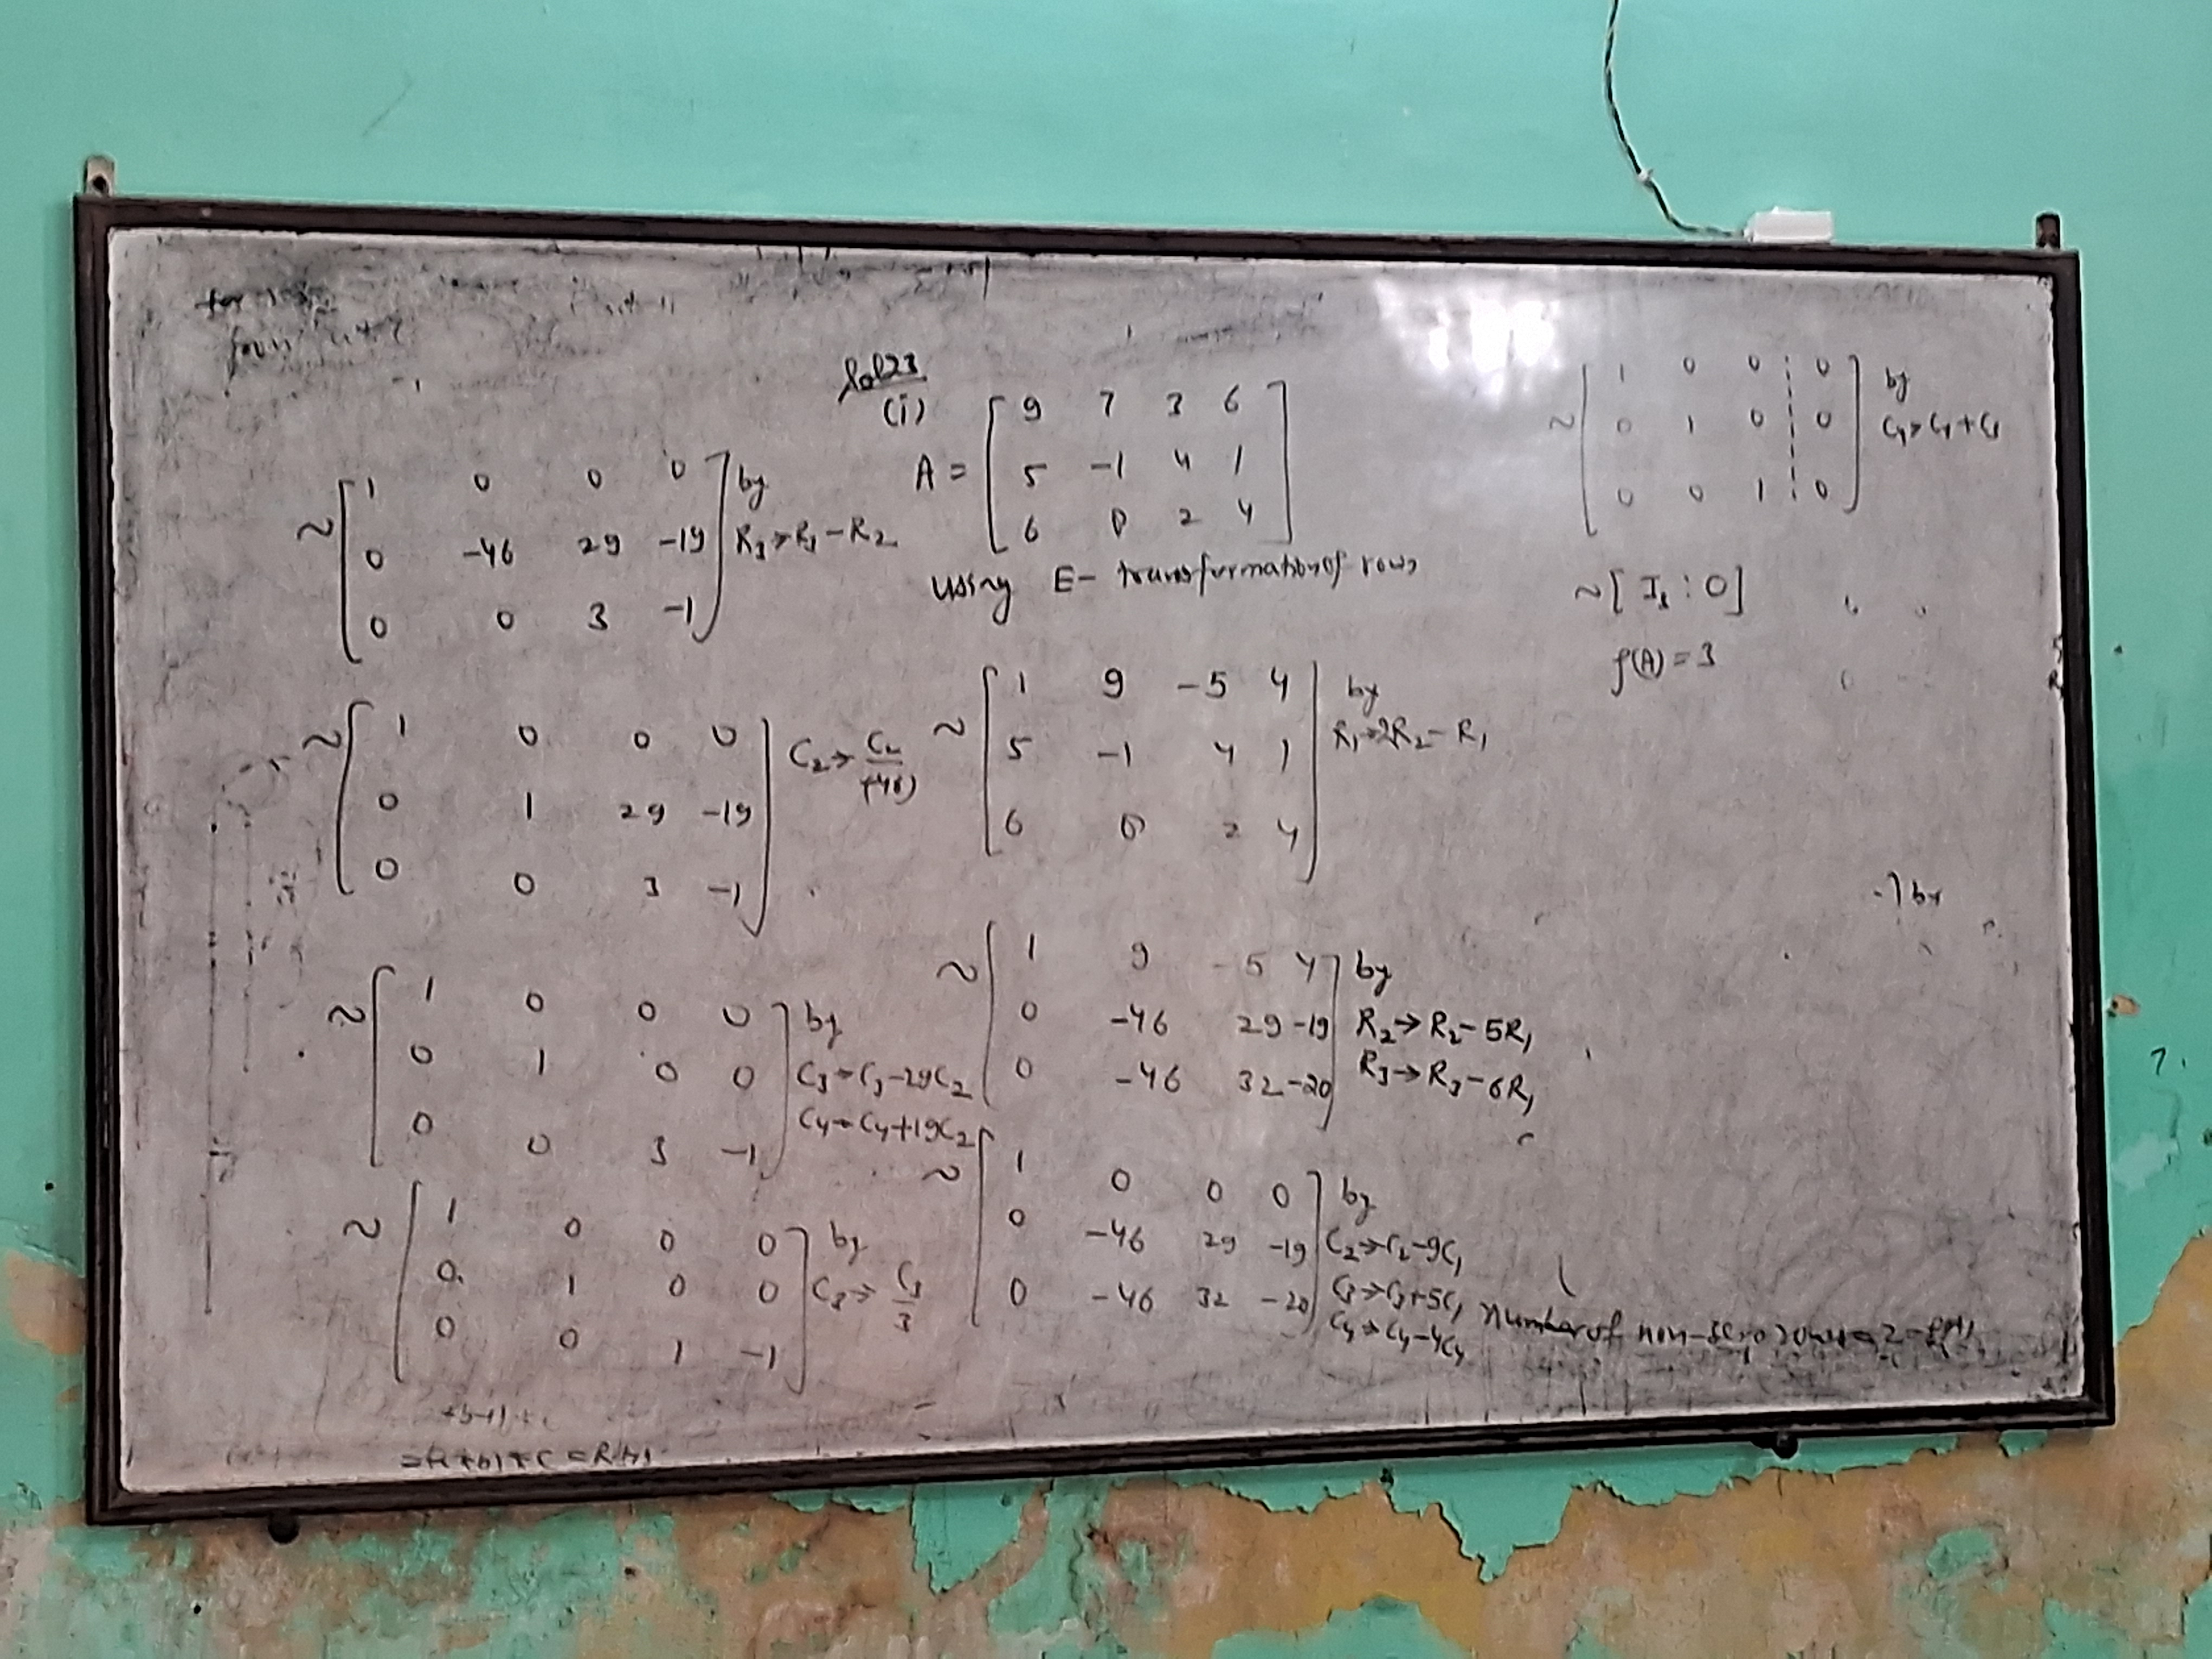 Sol23
(i)
A = [ 9 7 3 6
5 -1 4 1
6 8 2 4 ]
using E- transformation of rows
~ [ 1 9 -5 4
5 -1 4 1
6 8 2 4 ] by R₁→2R₂-R₁
~ [ 1 9 -5 4
0 -46 29 -19
0 -46 32 -20 ] by R₂→R₂-5R₁
R₃→R₃-6R₁
~ [ 1 0 0 0
0 -46 29 -19
0 -46 32 -20 ] by
C₂→C₂-9C₁
C₃→C₃+5C₁
C₄→C₄-4C₄
~ [ 1 0 0 0
0 -46 29 -19
0 0 3 -1 ] by
R₃→R₃-R₂
~ [ 1 0 0 0
0 1 29 -19
0 0 3 -1 ] C₂→C₂/(-46)
~ [ 1 0 0 0
0 1 0 0
0 0 3 -1 ] by
C₃→C₃-29C₂
C₄→C₄+19C₂
~ [ 1 0 0 0
0 1 0 0
0 0 1 -1 ] by
C₃→C₃/3
~ [ 1 0 0 : 0
0 1 0 : 0
0 0 1 : 0 ] by
C₄→C₄+C₃
~ [ I₃ : 0 ]
ρ(A) = 3
by
number of non-zero rows = 2